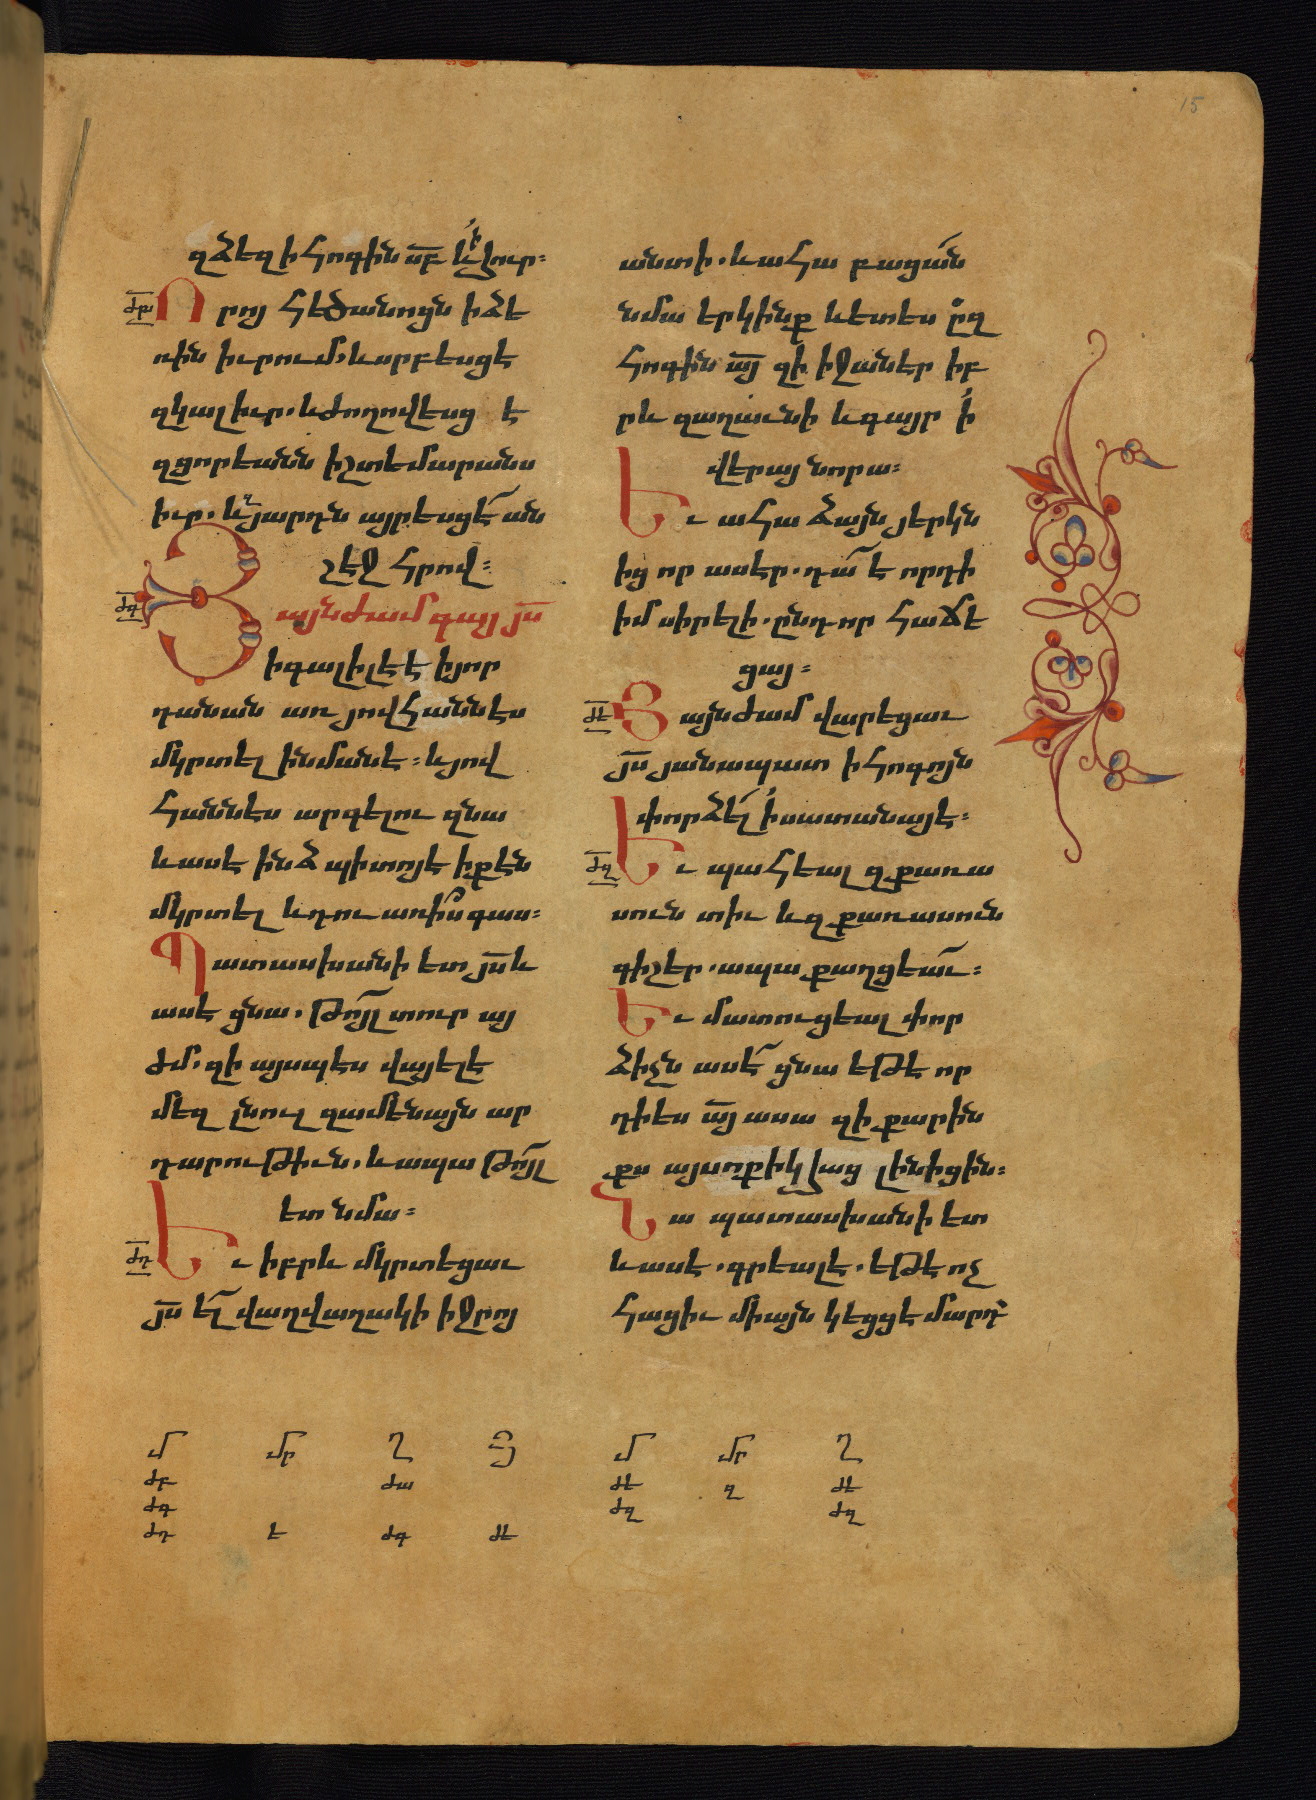 15
զձեզ ի հոգին սբ և ի հուր։
ժբ Որոյ հեծանոցն ի ձե
ռին իւրում. և սրբեսցէ
զկալ իւր. և ժողովեսց է
զցորեանն ի շտեմարանս
իւր. և զյարդն այրեսցէ ան
շէջ հրով։
ժգ Յայնժամ գայ յս
ի գալիլեէ ի յոր
դանան առ յովհաննէս
մկրտել ի նմանէ։ և յով
հաննէս արգելոյր զնա
և ասէ ինձ պիտոյ է ի քէն
մկրտել և դու առ իս գաս։
Պատասխանի ետ յս և
ասէ ցնա. Թոյլ տուր այ
ժմ. զի այսպէս վայել է
մեզ լնուլ զամենայն ար
դարութիւն. և ապա թոյլ
ետ նմա։
ժդ Եւ իբրև մկրտեցաւ
յս ել վաղվաղակի ի ջրոյ
անտի. և ահա բացան
նմա երկինք և ետես զ
հոգին այ զի իջանէր իբ
րև զաղաւնի և գայր ի
վերայ նորա։
Եւ ահա ձայն յերկն
ից որ ասէր. դա է որդի
իմ սիրելի. ընդ որ հաճե
ցայ։
ժե Յայնժամ վարեցաւ
յս յանապատ ի հոգոյն
փորձել ի սատանայէ։
ժզ Եւ պահեալ զքառա
սուն տիւ և զքառասուն
գիշեր. ապա քաղցեաւ։
Եւ մատուցեալ փոր
ձիչն ասէ ցնա եթէ որ
դի ես այ ասա զի քարին
քս այսոքիկ հաց լինիցին։
Նա պատասխանի ետ
և ասէ. գրեալ է. եթէ ոչ
հացիւ միայն կեցցէ մարդ
մ մր ղ յ մ մր ղ
ժբ ժա ժե զ ժե
ժգ ժզ ժզ
ժդ է ժգ ժե